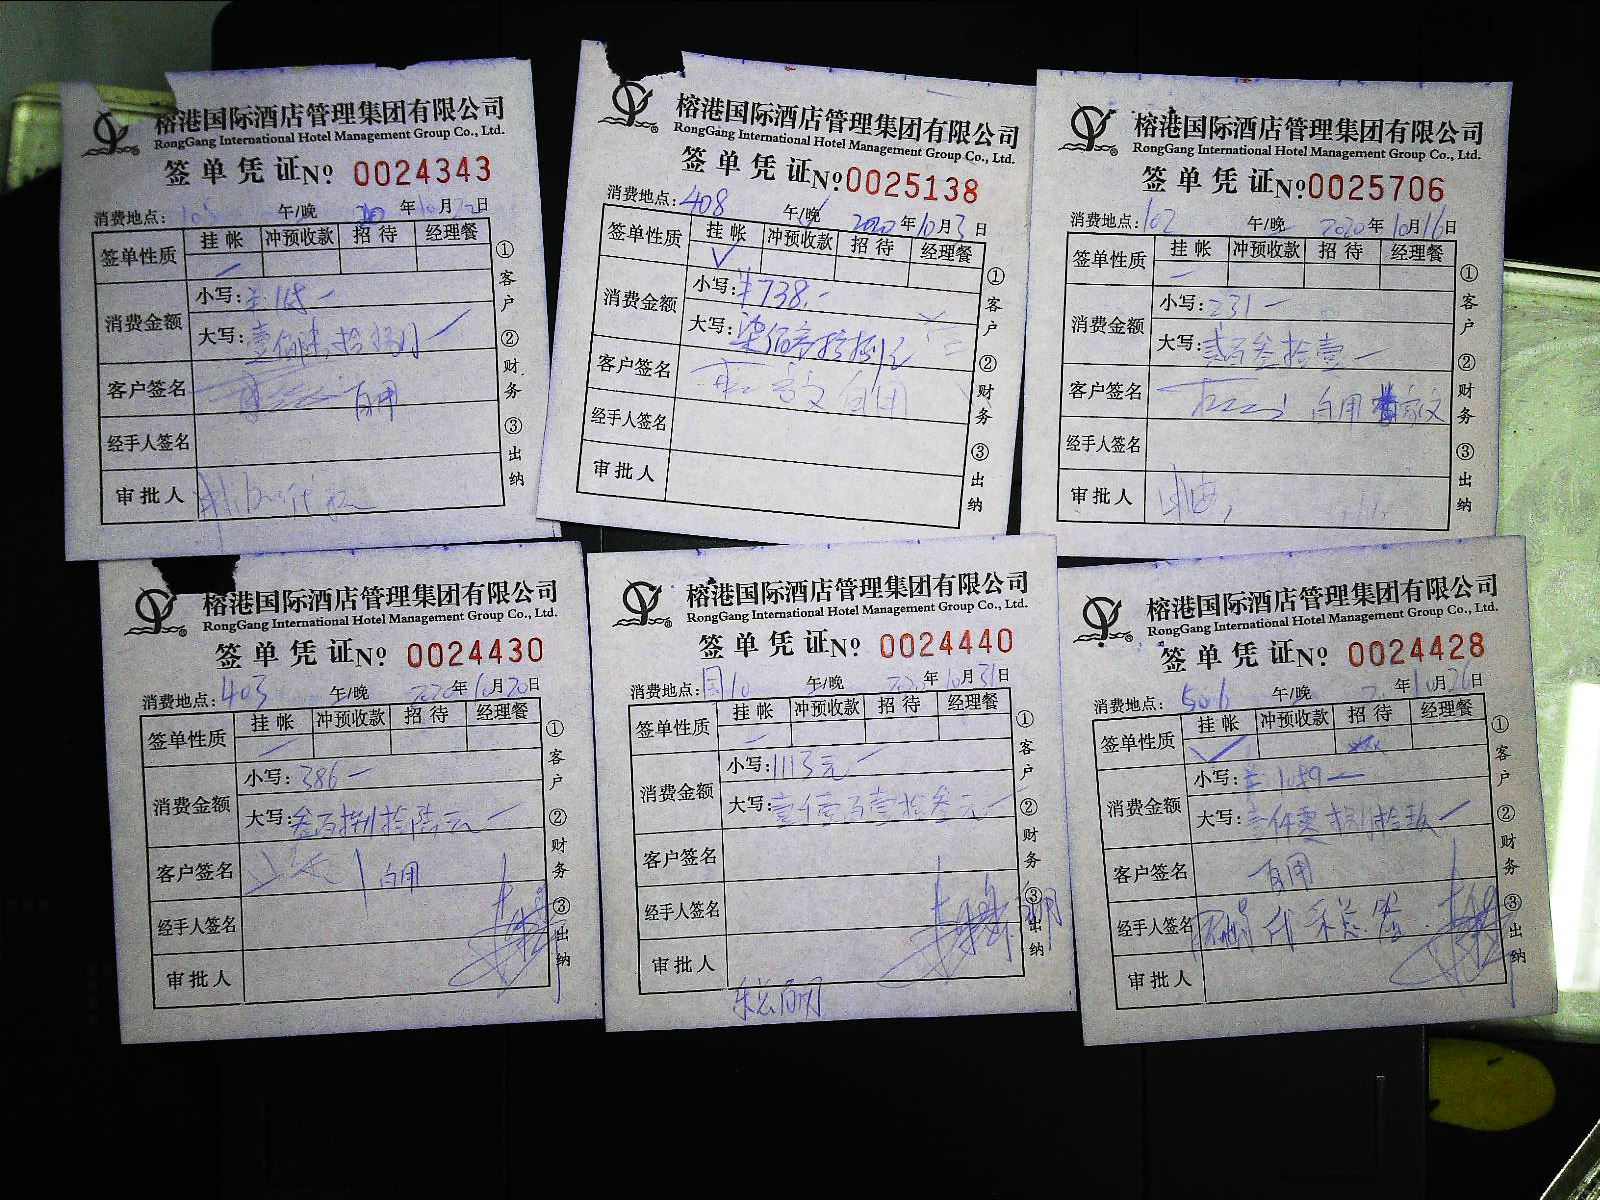 榕港国际酒店管理集团有限公司
RongGang International Hotel Management Group Co., Ltd.
签单凭证№ 0024343
消费地点: 午/晚 年10月22日
签单性质 挂帐 冲预收款 招待 经理餐
消费金额 小写:
大写:
客户签名 自用
经手人签名
审批人
①客户 ②财务 ③出纳
榕港国际酒店管理集团有限公司
RongGang International Hotel Management Group Co., Ltd.
签单凭证№0025138
消费地点: 408 午/晚 2020年10月3日
签单性质 挂帐 冲预收款 招待 经理餐
消费金额 小写: ¥738.-
大写: 柒佰叁拾捌元
客户签名 自用
经手人签名
审批人
①客户 ②财务 ③出纳
榕港国际酒店管理集团有限公司
RongGang International Hotel Management Group Co., Ltd.
签单凭证№0025706
消费地点: 102 午/晚 2020年10月16日
签单性质 挂帐 冲预收款 招待 经理餐
消费金额 小写: 231-
大写: 贰百叁拾壹-
客户签名 自用
经手人签名
审批人
①客户 ②财务 ③出纳
榕港国际酒店管理集团有限公司
RongGang International Hotel Management Group Co., Ltd.
签单凭证№ 0024430
消费地点: 403 午/晚 2020年10月20日
签单性质 挂帐 冲预收款 招待 经理餐
消费金额 小写: 386-
大写: 叁百捌拾陆元-
客户签名 自用
经手人签名
审批人
①客户 ②财务 ③出纳
榕港国际酒店管理集团有限公司
RongGang International Hotel Management Group Co., Ltd.
签单凭证№ 0024440
消费地点: 国10 午/晚 年10月31日
签单性质 挂帐 冲预收款 招待 经理餐
消费金额 小写: 1113元-
大写: 壹仟壹百壹拾叁元-
客户签名
经手人签名
审批人
①客户 ②财务 ③出纳
榕港国际酒店管理集团有限公司
RongGang International Hotel Management Group Co., Ltd.
签单凭证№ 0024428
消费地点: 506 午/晚 年10月26日
签单性质 挂帐 冲预收款 招待 经理餐
消费金额 小写: ¥1089-
大写: 壹仟零捌拾玖-
客户签名 自用
经手人签名
审批人
①客户 ②财务 ③出纳